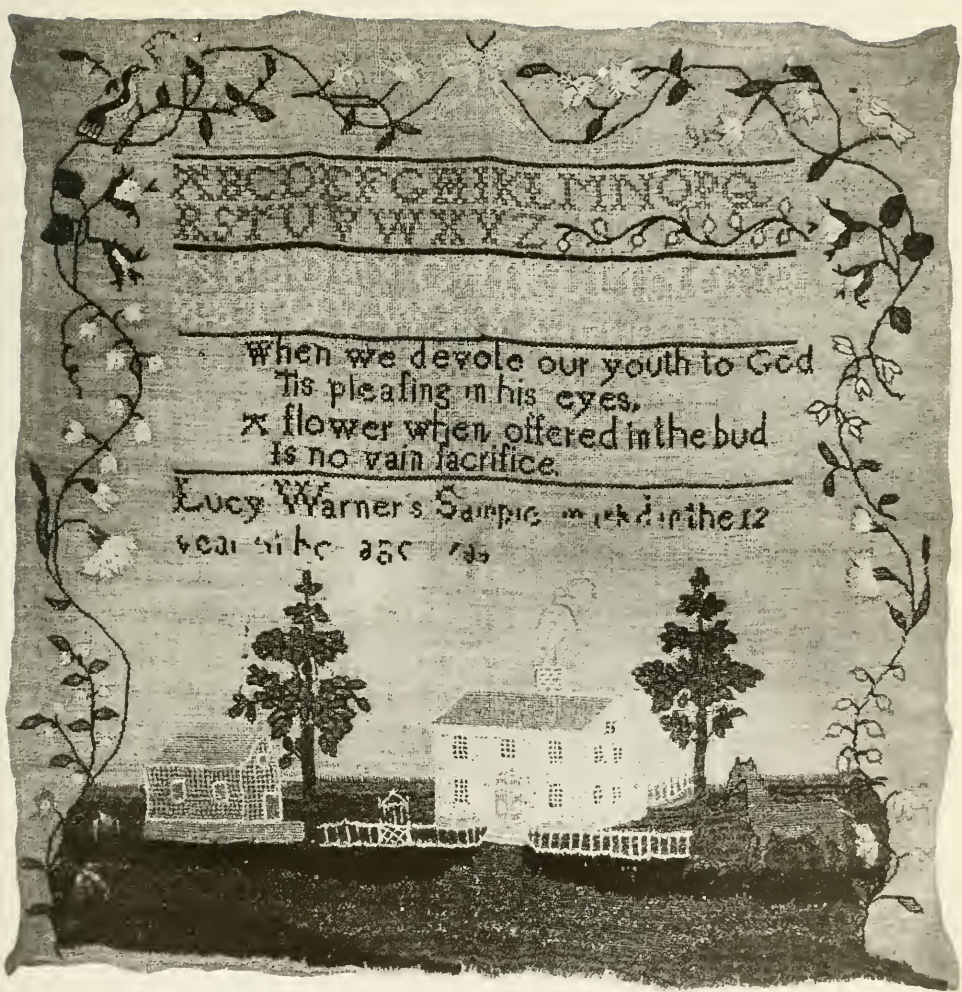 ABCDEFGHIKLMNOPQ
RSTUVWXYZ
When we devote our youth to God
Tis pleaſing in his eyes,
A flower when offered in the bud
Is no vain ſacrifice.
Lucy Warner's Sample in the 12
age